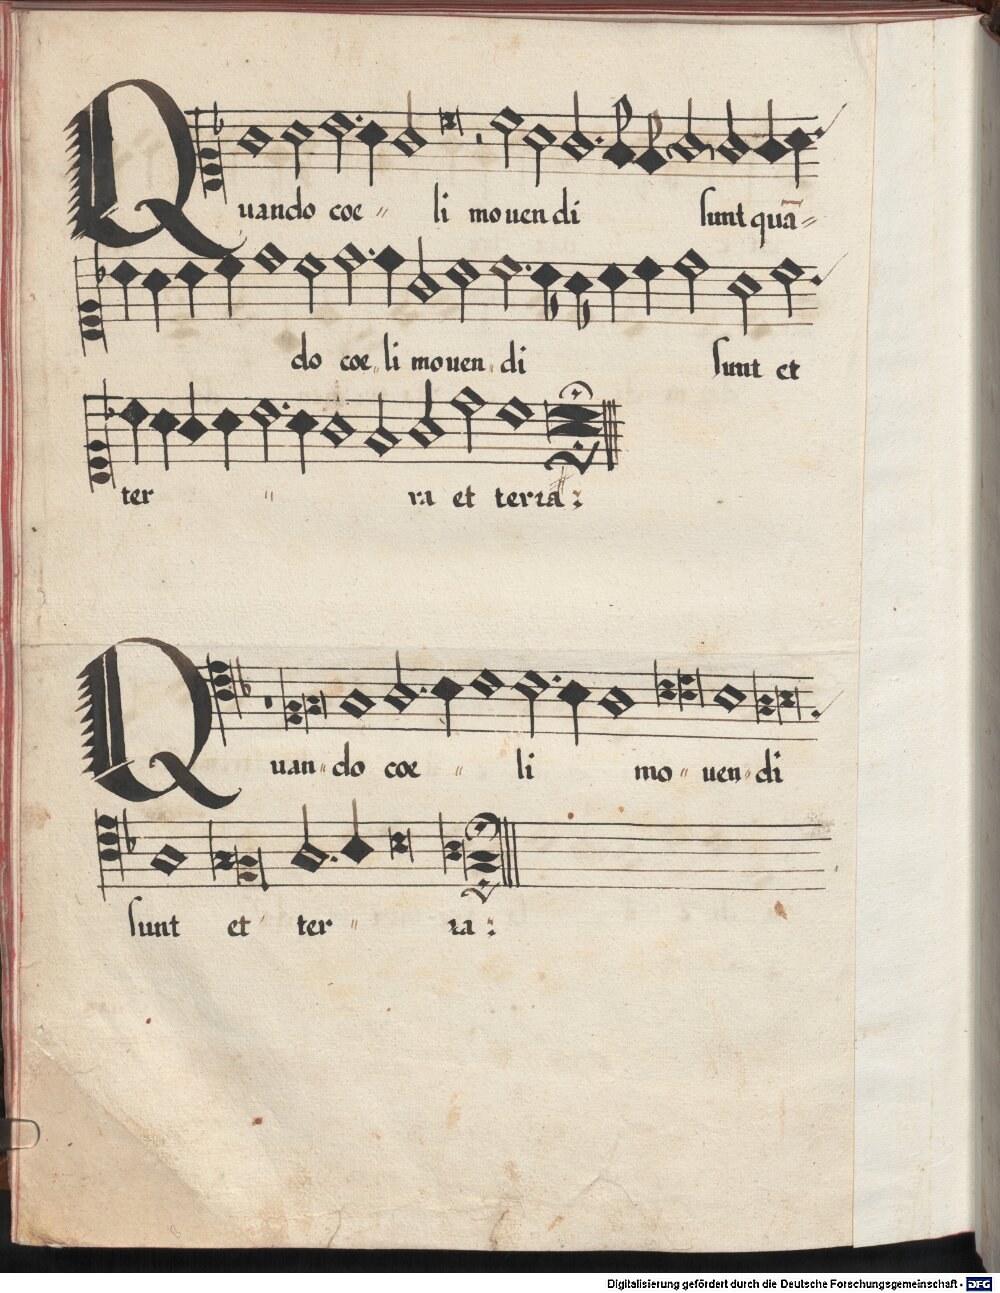 Quando coe〃 li mouendi sunt quā〃
do coe〃li mouen〃di sunt et
ter 〃 ra et terra:
Quan〃do coe 〃 li mo〃 uen〃di
sunt et ter 〃 ra:
Digitalisierung gefördert durch die Deutsche Forschungsgemeinschaft - DFG